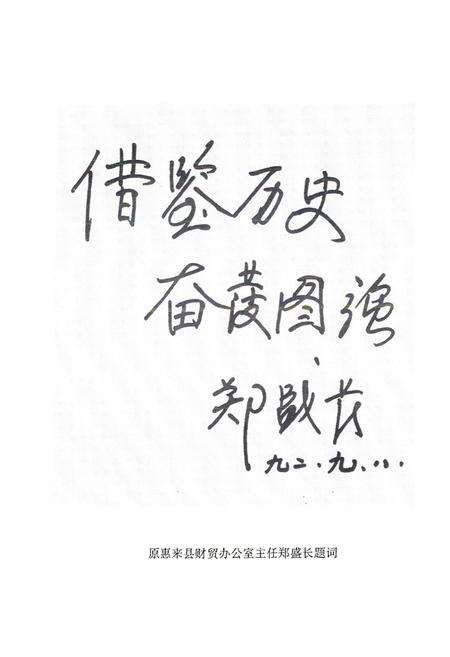 借鉴历史
奋发图强
郑盛长
九二.九.八.
原惠来县财贸办公室主任郑盛长题词